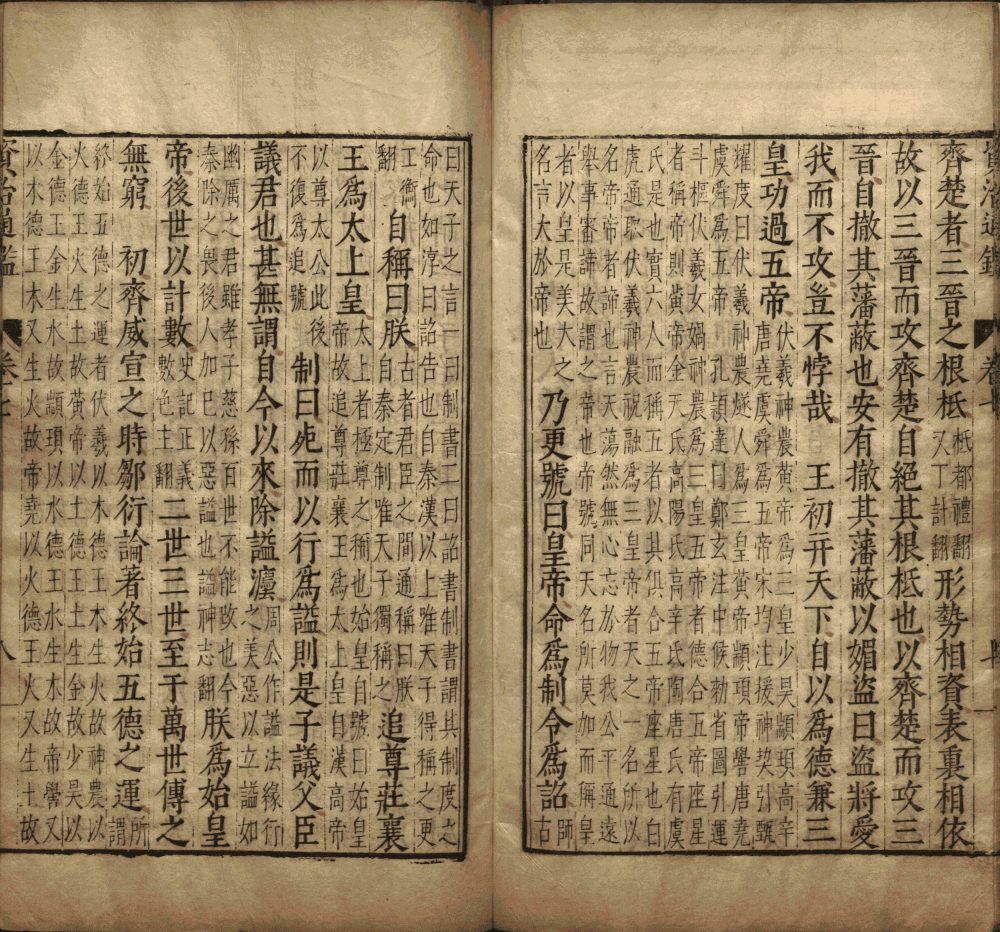 資治通鑑 卷七
齊楚者三晉之根柢
柢都禮翻
又丁計翻
形勢相資表裏相依
故以三晉而攻齊楚自絕其根柢也以齊楚而攻三
晉自撤其藩蔽也安有撤其藩蔽以媚盜曰盜將愛
我而不攻豈不悖哉　王初幷天下自以爲德兼三
皇功過五帝
伏羲神農黃帝爲三皇少昊顓頊高辛
唐堯虞舜爲五帝宋均注援神契引甄
耀度曰伏羲神農燧人爲三皇黃帝顓頊帝嚳唐堯
虞舜爲五帝孔頴達曰鄭玄注中候勑省圖引運
斗樞伏羲女媧神農爲三皇五帝者德合五帝座星
者稱帝則黃帝金天氏高陽氏高辛氏陶唐氏有虞
氏是也實六人而稱五者以其俱合五帝座星也白
虎通取伏羲神農祝融爲三皇帝者天之一名所以
名帝帝者諦也言天蕩然無心忘於物我公平通遠
舉事審諦故謂之帝也帝號同天名所莫加而稱皇
者以皇是美大之
名言大於帝也
乃更號曰皇帝命爲制令爲詔
師
古
曰天子之言一曰制書二曰詔書制書謂其制度之
命也如淳曰詔告也自秦漢以上唯天子得稱之更
工衡
翻
自稱曰朕
古者君臣之間通稱曰朕
自秦定制唯天子獨稱之
追尊莊襄
王爲太上皇
太上者極尊之稱也始皇自號曰始皇
帝故追尊莊襄王爲太上皇自漢高帝
以尊太公此後
不復爲追號
制曰死而以行爲謚則是子議父臣
議君也甚無謂自今以來除謚灋
周公作謚法緣行
之美惡以立謚如
幽厲之君雖孝子慈孫百世不能改也今
秦除之畏後人加已以惡謚也謚神志翻
朕爲始皇
帝後世以計數
史記正義
數色主翻
二世三世至于萬世傳之
無窮　初齊威宣之時鄒衍論著終始五德之運
所
謂
終始五德之運者伏羲以木德王木生火故神農以
火德王火生土故黃帝以土德王土生金故少昊以
金德王金生水故顓頊以水德王水生木故帝嚳又
以木德王木又生火故帝堯以火德王火又生土故
資治通鑑 卷七 八